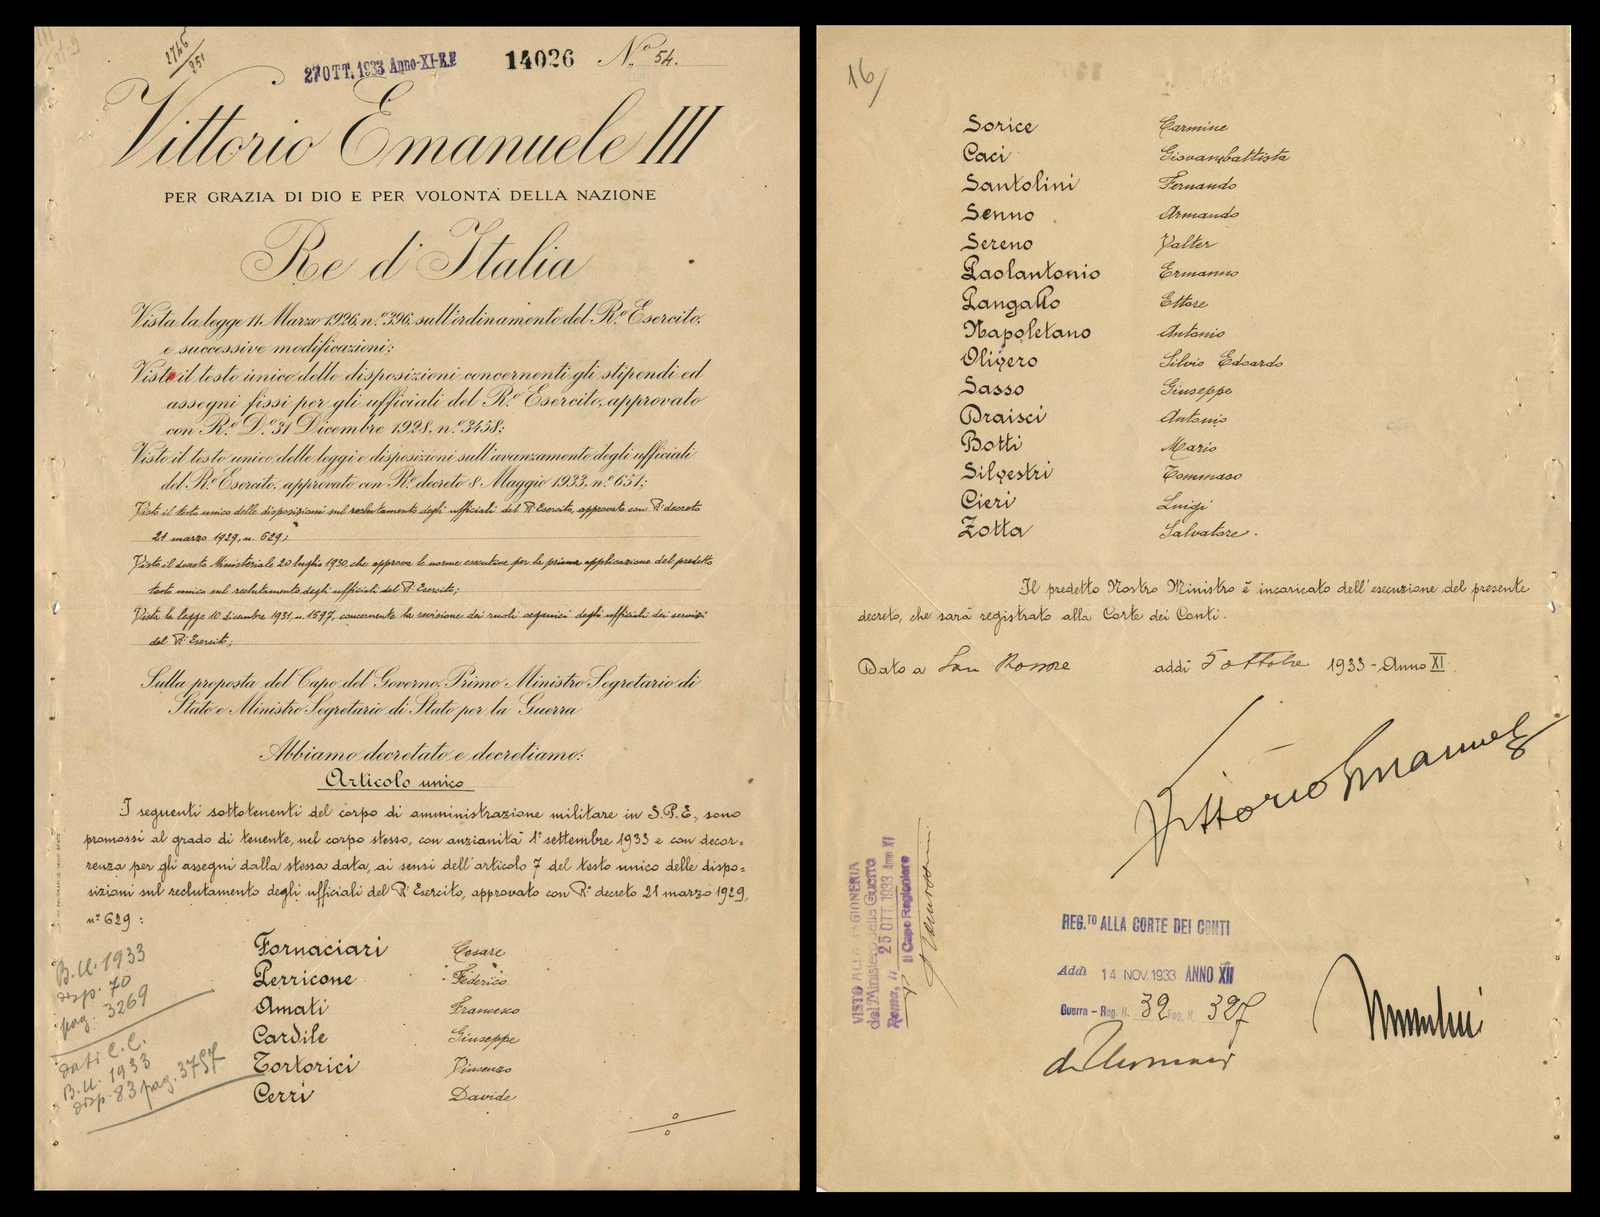 2746
251
27 OTT. 1933 Anno-XI-E.F
14026 N.º 54.
Vittorio Emanuele III
PER GRAZIA DI DIO E PER VOLONTÀ DELLA NAZIONE
Re d'Italia
Vista la legge 11 Marzo 1926, n.º 396, sull'ordinamento del R.º Esercito,
e successive modificazioni;
Visto il testo unico delle disposizioni concernenti gli stipendi ed
assegni fissi per gli ufficiali del R.º Esercito, approvato
con R.º D.º 31 Dicembre 1928, n.º 3458;
Visto il testo unico delle leggi e disposizioni sull'avanzamento degli ufficiali
del R.º Esercito, approvato con R.º decreto 8 Maggio 1933, n.º 651;
Visto il testo unico delle disposizioni sul reclutamento degli ufficiali del R.º Esercito, approvato con R.º decreto
21 marzo 1929, n. 629;
Visto il decreto Ministeriale 20 luglio 1930, che approva le norme esecutive per la prima applicazione del predetto
testo unico sul reclutamento degli ufficiali del R.º Esercito;
Vista la legge 10 dicembre 1931, n. 1597, concernente la revisione dei ruoli organici degli ufficiali dei servizi
del R.º Esercito;
Sulla proposta del Capo del Governo, Primo Ministro Segretario di
Stato e Ministro Segretario di Stato per la Guerra
Abbiamo decretato e decretiamo:
Articolo unico
I seguenti sottotenenti del corpo di amministrazione militare in S.P.E., sono
promossi al grado di tenente, nel corpo stesso, con anzianità 1º settembre 1933 e con decor-
renza per gli assegni dalla stessa data, ai sensi dell'articolo 7 del testo unico delle dispo-
sizioni sul reclutamento degli ufficiali del R.º Esercito, approvato con R.º decreto 21 marzo 1929,
nº 629:
Fornaciari Cesare
Perricone Federico
Amati Francesco
Cardile Giuseppe
Tortorici Vincenzo
Cerri Davide
B.U. 1933
disp. 70
pag. 3269
dati C.C.
B.U. 1933
disp. 83 pag. 3757
16
Sorice Carmine
Caci Giovambattista
Santolini Fernando
Senno Armando
Sereno Valter
Paolantonio Ermanno
Pangallo Ettore
Napoletano Antonio
Olivero Silvio Edoardo
Sasso Giuseppe
Draisci Antonio
Botti Mario
Silvestri Tommaso
Cieri Luigi
Zotta Salvatore.
Il predetto Nostro Ministro è incaricato dell'esecuzione del presente
decreto, che sarà registrato alla Corte dei Conti.
Dato a San Rossore addì 5 ottobre 1933 - Anno XI.
Vittorio Emanuele
VISTO ALLA RAGIONERIA
del Ministero della Guerra
Roma, li 25 OTT. 1933 Anno XI
Il Capo Ragioniere
REG.TO ALLA CORTE DEI CONTI
Addì 14 NOV. 1933 ANNO XII
Guerra - Reg. N. 32 Fog. N. 327
Mussolini